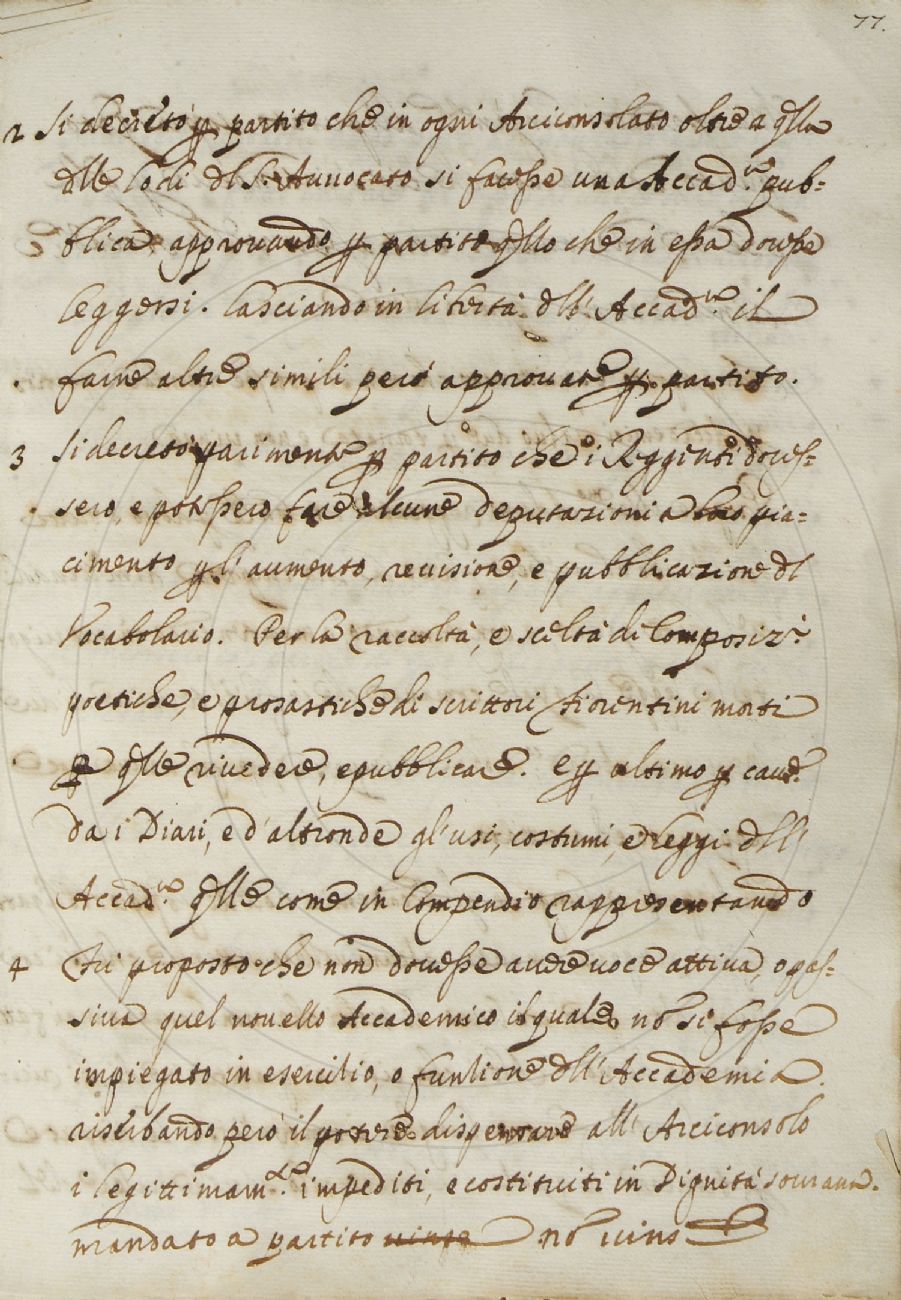 77.
2 Si decretò p partito che in ogni Arciconsolato oltre a qlla
dlle lodi dl S. Auuocato si facesse una Accad.ia pub=
blica approuando p partito qllo che in essa douesse
leggersi. lasciando in libertà dll' Accad.ia il
farne altre simili però approuate p partito.
3 Si decretò parimente p partito che i Reggenti doues=
sero, e potessero fare alcune deputazioni a loro pia=
cimento p l'aumento, reuisione, e pubblicazione dl
Vocabolario. Per la raccolta, e scelta di Composiz.i
poetiche, e prosastiche di scrittori fiorentini morti
p qlle riuedere, e pubblicare. e p ultimo p cauare
da i Diari, e d'altronde gl'usi, costumi, e leggi dll'
Accad.ia qlle come in Compendio rappresentando
4 Fù proposto che non douesse auere uoce attiua, o pas=
siua quel nouello Accademico il quale nõ si fosse
impiegato in esercitio, o funtione dll' Accademia.
riserbando però il potere dispensare all' Arciconsolo
i legittimam.te impediti, e costituiti in Dignità sourana.
mandato a partito uinto nõ uinto